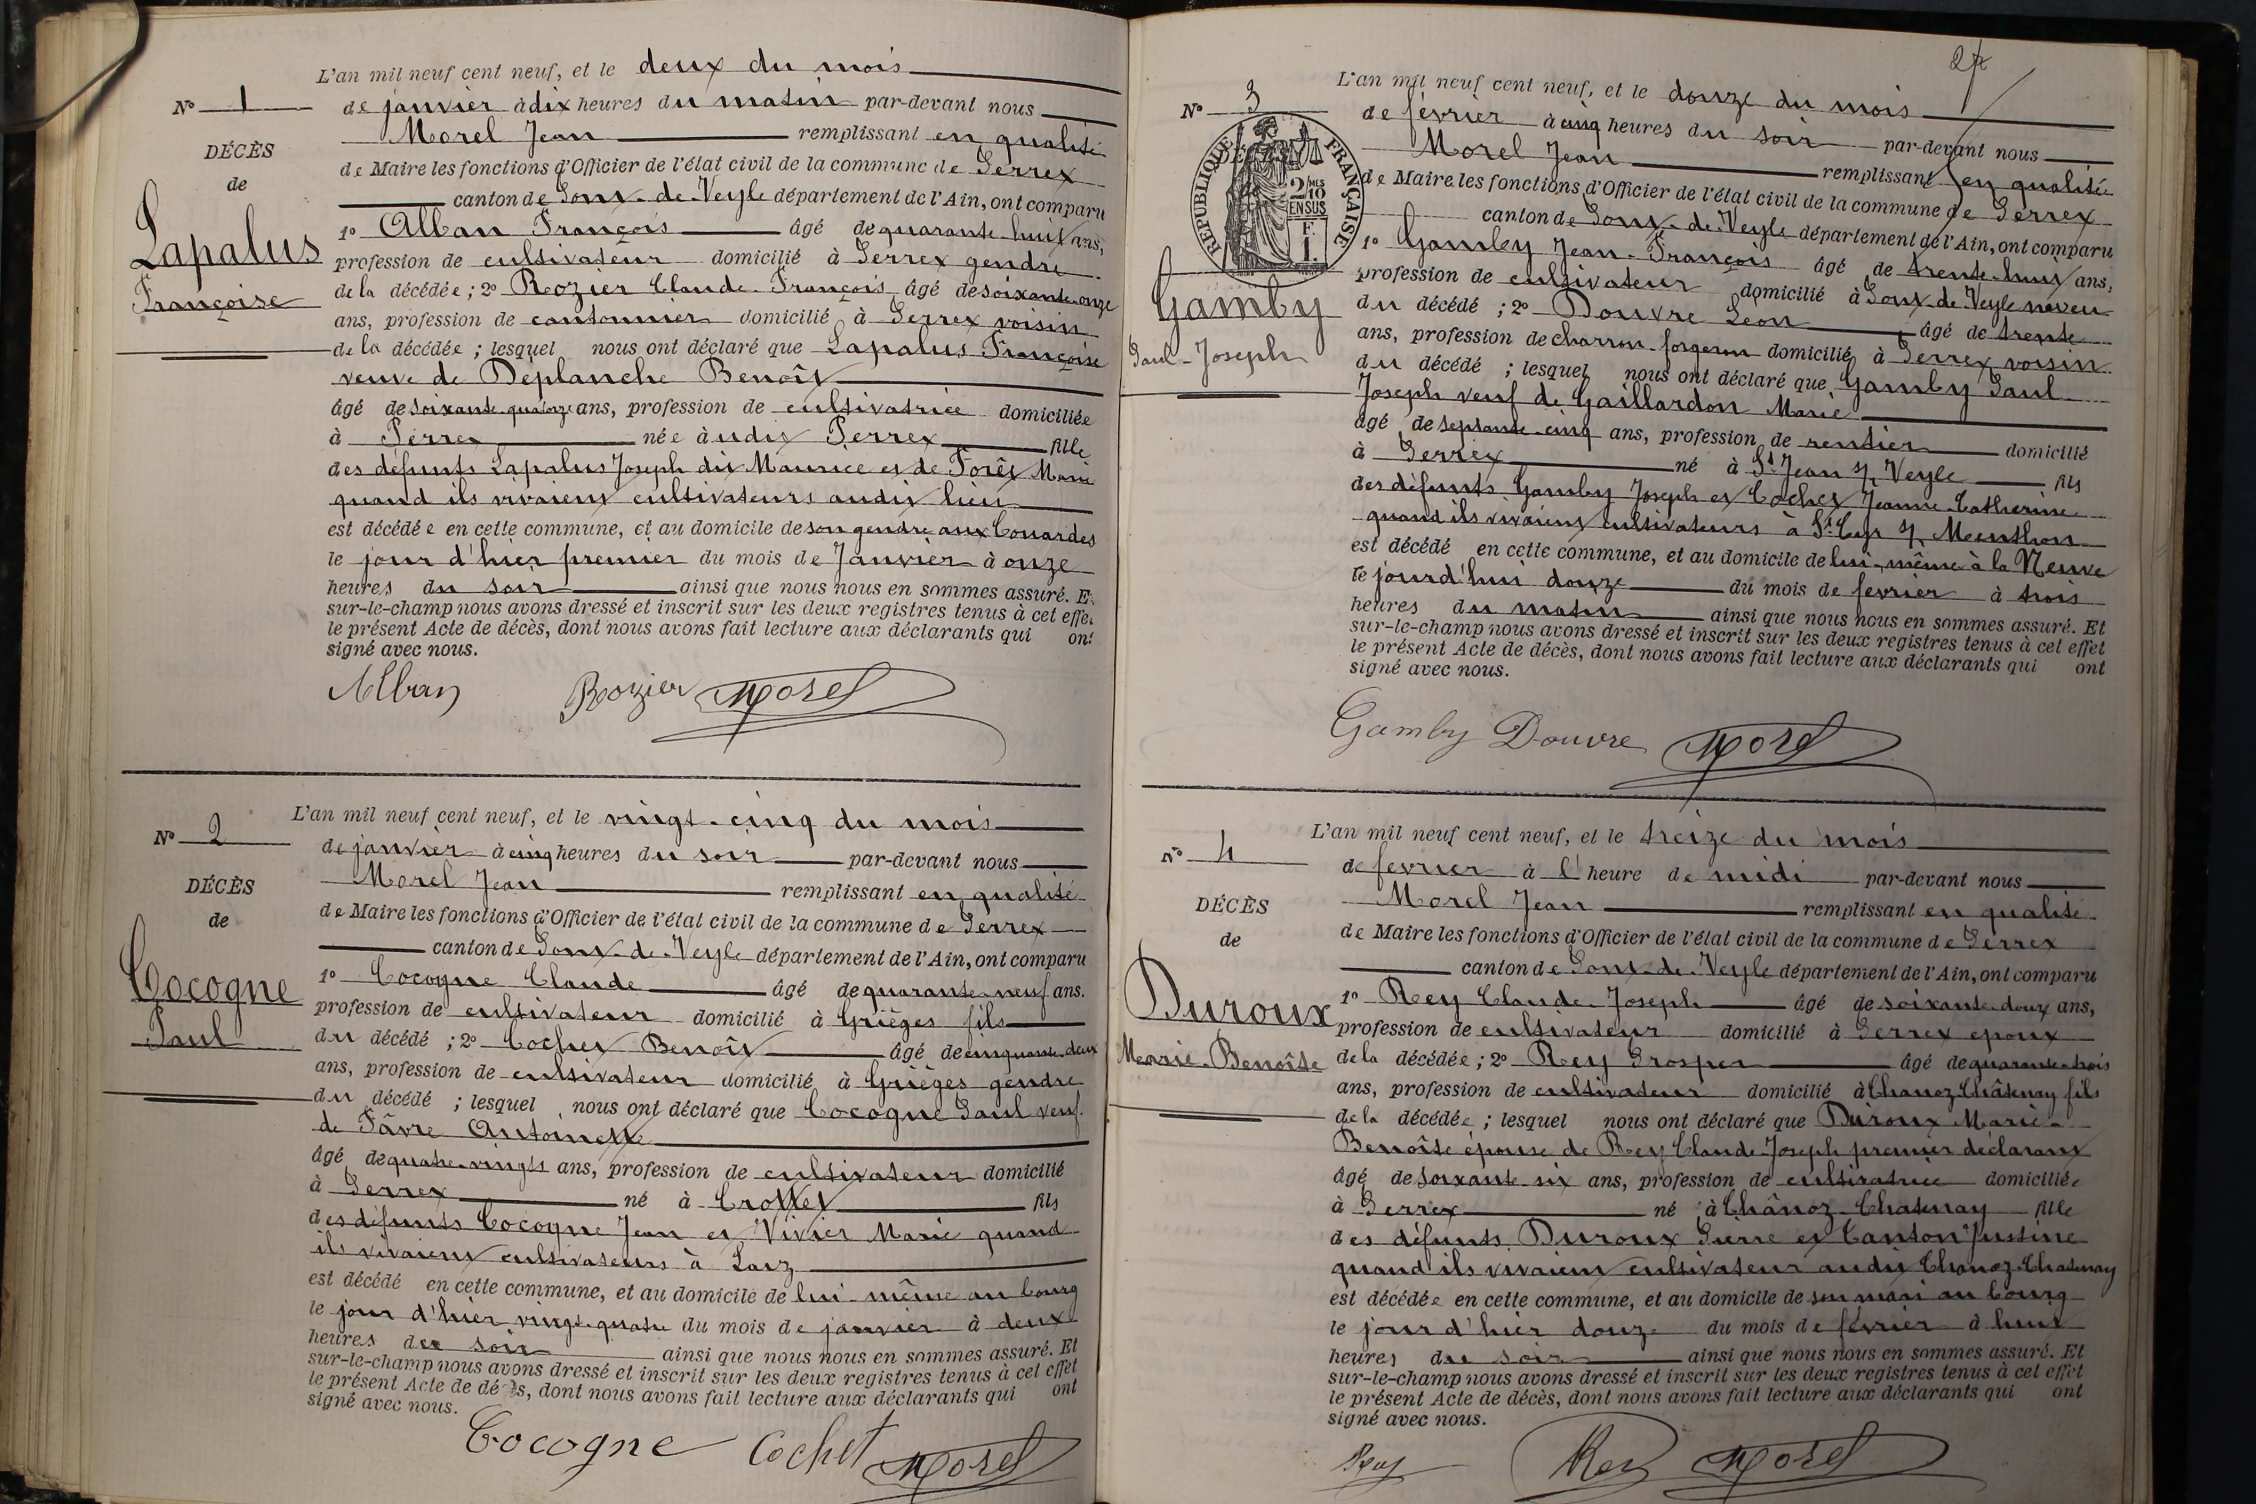 L'an mil neuf cent neuf, et le deux du mois
N° 1
de janvier à dix heures du matin par-devant nous
Morel Jean remplissant en qualité
DÉCÈS
de Maire les fonctions d'Officier de l'état civil de la commune de Perrex
de
canton de Pont-de-Veyle département de l'Ain, ont comparu
Lapalus
Françoise
1° Alban François âgé de quarante-huit ans,
profession de cultivateur domicilié à Perrex gendre
de la décédée ; 2° Rozier Claude-François âgé de soixante-onze
ans, profession de cantonnier domicilié à Perrex voisin
de la décédée ; lesquel nous ont déclaré que Lapalus Françoise
veuve de Deplanche Benoît
âgé de soixante-quatorze ans, profession de cultivatrice domiciliée
à Perrex née à udit Perrex fille
des défunts Lapalus Joseph dit Maurice et de Forêt Marie
quand ils vivaient cultivateurs audit lieu
est décédée en cette commune, et au domicile de son gendre aux Couardes
le jour d'hier premier du mois de Janvier à onze
heures du soir ainsi que nous nous en sommes assuré. Et
sur-le-champ nous avons dressé et inscrit sur les deux registres tenus à cet effet
le présent Acte de décès, dont nous avons fait lecture aux déclarants qui ont
signé avec nous.
Alban Rozier Morel
L'an mil neuf cent neuf, et le vingt-cinq du mois
N° 2
de janvier à cinq heures du soir par-devant nous
Morel Jean remplissant en qualité
DÉCÈS
de Maire les fonctions d'Officier de l'état civil de la commune de Perrex
de
canton de Pont-de-Veyle département de l'Ain, ont comparu
Cocogne
Paul
1° Cocogne Claude âgé de quarante-neuf ans.
profession de cultivateur domicilié à Grièges fils
du décédé ; 2° Cochet Benoît âgé de cinquante-deux
ans, profession de cultivateur domicilié à Grièges gendre
du décédé ; lesquel nous ont déclaré que Cocogne Paul veuf
de Fâvre Antoinette
âgé de quatre-vingts ans, profession de cultivateur domicilié
à Perrex né à Crottet fils
des défunts Cocogne Jean et Vivier Marie quand
ils vivaient cultivateurs à Laiz
est décédé en cette commune, et au domicile de lui-même au bourg
le jour d'hier vingt-quatre du mois de janvier à deux
heures du soir ainsi que nous nous en sommes assuré. Et
sur-le-champ nous avons dressé et inscrit sur les deux registres tenus à cet effet
le présent Acte de décès, dont nous avons fait lecture aux déclarants qui ont
signé avec nous.
Cocogne Cochet Morel
L'an mil neuf cent neuf, et le douze du mois
N° 3
de février à cinq heures du soir par-devant nous
Morel Jean remplissant en qualité
RÉPUBLIQUE FRANÇAISE
2/10 MES
EN SUS
F.
1.
de Maire les fonctions d'Officier de l'état civil de la commune de Perrex
canton de Pont-de-Veyle département de l'Ain, ont comparu
Gamby
Paul-Joseph
1° Gamby Jean-François âgé de trente-huit ans,
profession de cultivateur domicilié à Pont-de-Veyle neveu
du décédé ; 2° Douvre Léon âgé de trente
ans, profession de charron-forgeron domicilié à Perrex voisin
du décédé ; lesquel nous ont déclaré que Gamby Paul
Joseph veuf de Gaillardon Marie
âgé de septante-cinq ans, profession de rentier domicilié
à Perrex né à St Jean s/ Veyle fils
des défunts Gamby Joseph et Cochet Jeanne-Catherine
quand ils vivaient cultivateurs à St Cyr s/ Menthon
est décédé en cette commune, et au domicile de lui-même à la Neuve
le jourd'hui douze du mois de février à trois
heures du matin ainsi que nous nous en sommes assuré. Et
sur-le-champ nous avons dressé et inscrit sur les deux registres tenus à cet effet
le présent Acte de décès, dont nous avons fait lecture aux déclarants qui ont
signé avec nous.
Gamby Douvre Morel
L'an mil neuf cent neuf, et le treize du mois
N° 4
de fevrier à l'heure de midi par-devant nous
Morel Jean remplissant en qualité
DÉCÈS
de Maire les fonctions d'Officier de l'état civil de la commune de Perrex
de
canton de Pont-de-Veyle département de l'Ain, ont comparu
Duroux
Marie-Benoîte
1° Rey Claude-Joseph âgé de soixante-douze ans,
profession de cultivateur domicilié à Perrex epoux
de la décédée ; 2° Rey Prosper âgé de quarante-trois
ans, profession de cultivateur domicilié à Chanoz-Châtenay fils
de la décédée ; lesquel nous ont déclaré que Duroux Marie-
Benoîte épouse de Rey Claude-Joseph premier déclarant
âgé de soixante-six ans, profession de cultivatrice domiciliée
à Perrex né à Chânoz-Chatenay fille
des défunts Duroux Pierre et Canton Justine
quand ils vivaient cultivateur audit Chanoz-Chatenay
est décédée en cette commune, et au domicile de son mari au bourg
le jour d'hier douze du mois de février à huit
heures du soir ainsi que nous nous en sommes assuré. Et
sur-le-champ nous avons dressé et inscrit sur les deux registres tenus à cet effet
le présent Acte de décès, dont nous avons fait lecture aux déclarants qui ont
signé avec nous.
Rey Rey Morel